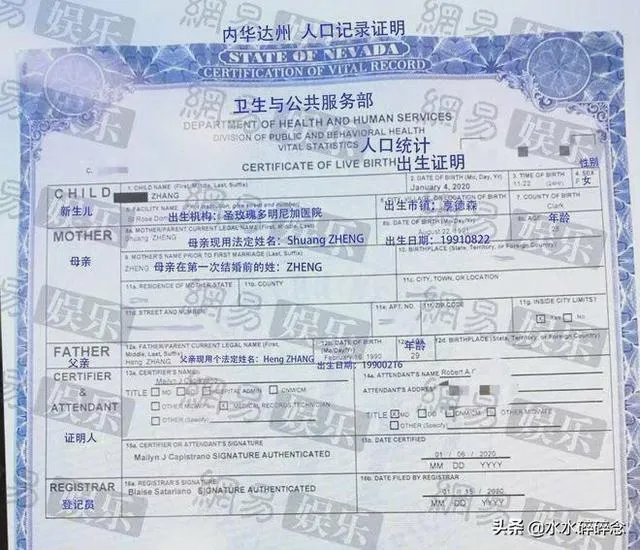 内华达州 人口记录证明
STATE OF NEVADA
CERTIFICATION OF VITAL RECORD
卫生与公共服务部
DEPARTMENT OF HEALTH AND HUMAN SERVICES
DIVISION OF PUBLIC AND BEHAVIORAL HEALTH
VITAL STATISTICS 人口统计
CERTIFICATE OF LIVE BIRTH 出生证明
性别
CHILD 1. CHILD NAME (First, Middle, Last, Suffix) 2. DATE OF BIRTH (Mo, Day, Yr) 3. TIME OF BIRTH 4. SEX
ZHANG January 4, 2020 11:22 女
新生儿 5. FACILITY NAME
St Rose Dom 出生机构：圣玫瑰多明尼加医院 出生市镇：亨德森
MOTHER MOTHER/PARENT CURRENT LEGAL NAME (First, Middle, Last, Suffix) DATE OF BIRTH (Mo, Day, Yr) 年龄
Shuang ZHENG 母亲现用法定姓名：Shuang ZHENG August 22, 1991 出生日期：19910822
母亲 MOTHER'S NAME PRIOR TO FIRST MARRIAGE (Last, Suffix) 10. BIRTHPLACE (State, Territory, or Foreign Country)
ZHENG 母亲在第一次结婚前的姓：ZHENG
11a. RESIDENCE OF MOTHER-STATE 11b. COUNTY 11c. CITY, TOWN, OR LOCATION
11d. STREET AND NUMBER 11e. APT. NO. 11f. ZIP CODE 11g. INSIDE CITY LIMITS?
Yes No
FATHER 12a. FATHER/PARENT CURRENT LEGAL NAME (First, Middle, Last, Suffix) 12b. DATE OF BIRTH (Mo/Day/Yr) 年龄 12d. BIRTHPLACE (State, Territory, or Foreign Country)
父亲 Heng ZHANG 父亲现用个法定姓名：Heng ZHANG February 16, 1990 29
出生日期：19900216
CERTIFIER & ATTENDANT 13a. CERTIFIER'S NAME 14a. ATTENDANT'S NAME Robert A
Mailyn J Capistrano ATTENDANT'S ADDRESS
TITLE MD DO HOSPITAL ADMIN CNM/CM TITLE MD DO CNM/CM OTHER MIDWIFE
OTHER MIDWIFE MEDICAL RECORDS TECHNICIAN OTHER (Specify)
OTHER (Specify)
证明人 15a. CERTIFIER OR ATTENDANT'S SIGNATURE 15b. DATE CERTIFIED
Mailyn J Capistrano SIGNATURE AUTHENTICATED 01 / 06 / 2020
MM DD YYYY
REGISTRAR 16a. REGISTRAR'S SIGNATURE 16b. DATE FILED BY REGISTRAR
登记员 Blaise Satariano SIGNATURE AUTHENTICATED 01 / 15 / 2020
MM DD YYYY
網易娱乐
头条 @水水碎碎念